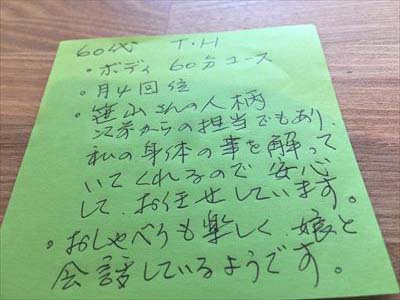 60代 T・H
・ボディ 60分コース
・月4回位
・笹山さんの人柄
以前からの担当でもあり、
私の身体の事を解って
いてくれるので 安心
して、お任せしています。
・おしゃべりも楽しく、娘と
会話しているようです。